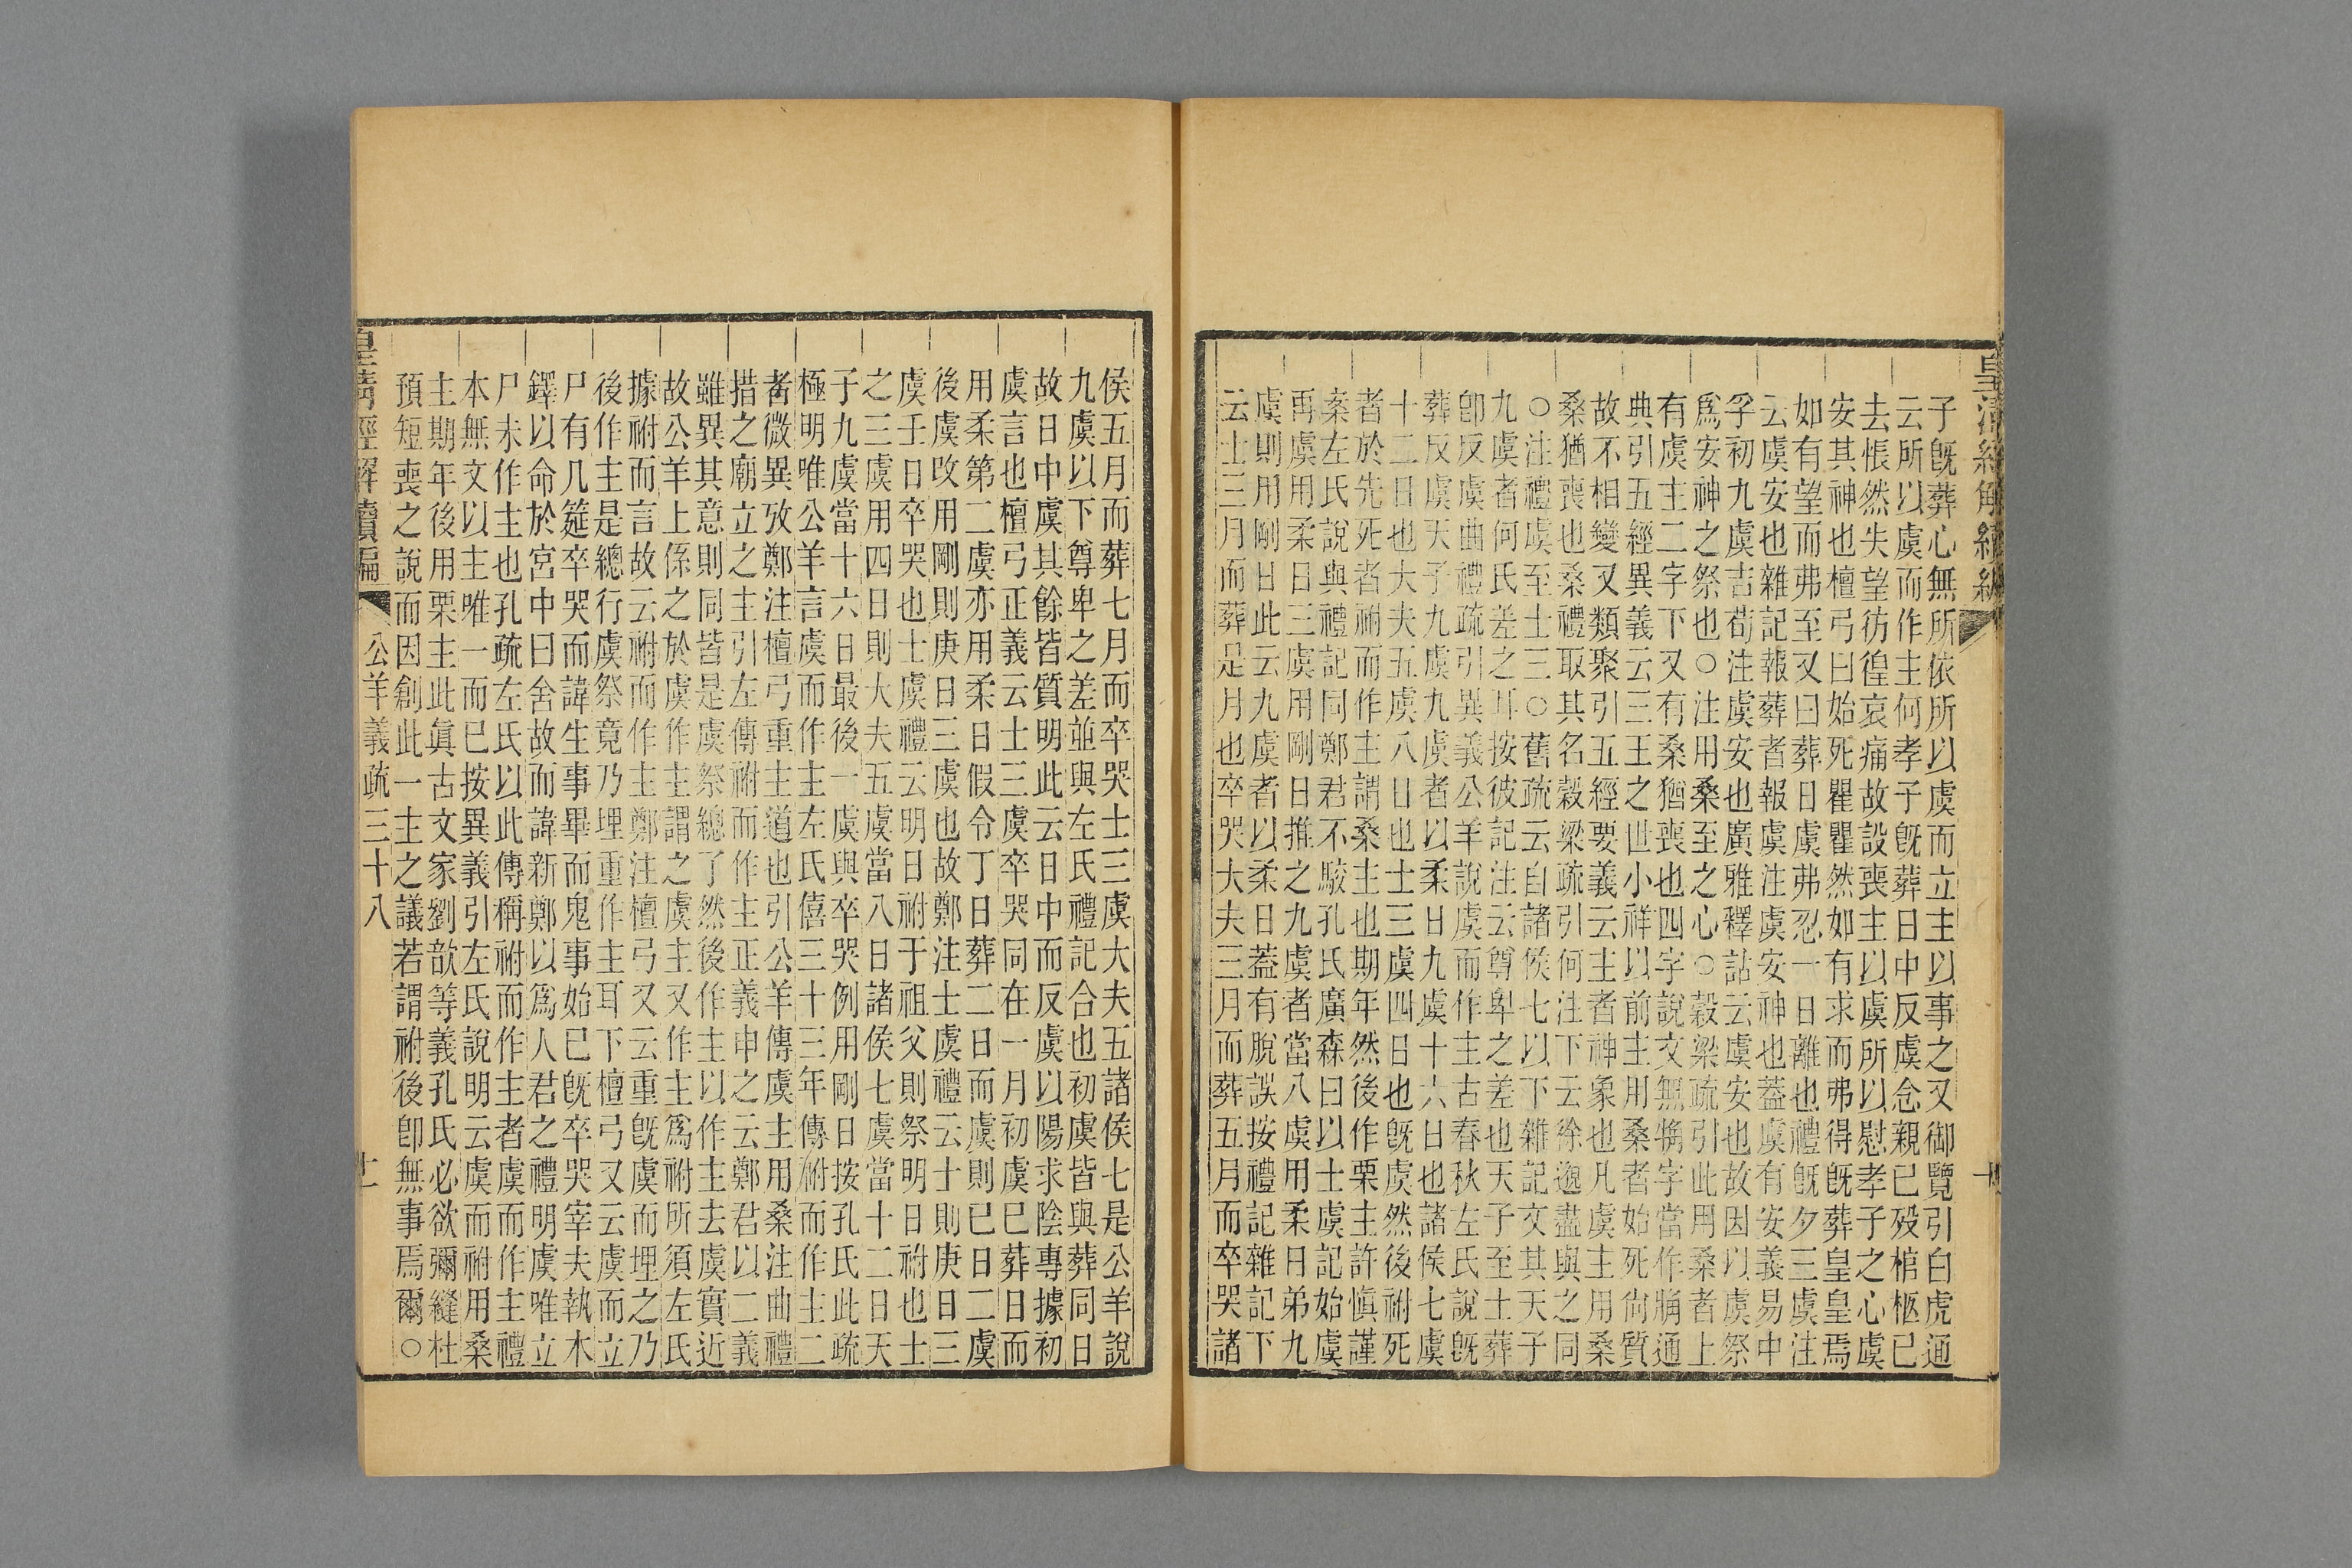 皇清經解續編
子旣葬心無所依所以虞而立主以事之又御覽引白虎通
云所以虞而作主何孝子旣葬日中反虞念親已歿棺柩已
去悵然失望彷徨哀痛故設喪主以虞所以慰孝子之心虞
安其神也檀弓曰始死瞿瞿然如有求而弗得旣葬皇皇焉
如有望而弗至又曰葬日虞弗忍一日離也禮旣夕三虞注
云虞安也雜記報葬者報虞注虞安神也蓋虞有安義易中
孚初九虞吉荀注虞安也廣雅釋詁云虞安也故因以虞祭
爲安神之祭也○注用桑至之心○穀梁疏引此用桑者上
有虞主二字下又有桑猶喪也四字說文無猶字當作牖通
典引五經異義云三王之世小祥以前主用桑者始死尙質
故不相變又類聚引五經要義云主者神象也凡虞主用桑
桑猶喪也桑禮取其名穀梁疏引何注下云徐邈盡與之同
○注禮虞至士三○舊疏云自諸侯七以下雜記文其天子
九虞者何氏差之耳按彼記注云尊卑之差也天子至士葬
卽反虞曲禮疏引異義公羊說虞而作主古春秋左氏說旣
葬反虞天子九虞九虞者以柔日九虞十六日也諸侯七虞
十二日也大夫五虞八日也士三虞四日也旣虞然後祔死
者於先死者祔而作主謂桑主也期年然後作栗主許愼謹
案左氏說與禮記同鄭君不駮孔氏廣森曰以士虞記始虞
再虞用柔日三虞用剛日推之九虞者當八虞用柔日弟九
虞則用剛日此云九虞者以柔日蓋有脫誤按禮記雜記下
云士三月而葬是月也卒哭大夫三月而葬五月而卒哭諸
侯五月而葬七月而卒哭士三虞大夫五諸侯七是公羊說
九虞以下尊卑之差並與左氏禮記合也初虞皆與葬同日
故日中虞其餘皆質明此云日中而反虞以陽求陰專據初
虞言也檀弓正義云士三虞卒哭同在一月初虞已葬日而
用柔第二虞亦用柔日假令丁日葬二日而虞則已日二虞
後虞改用剛則庚日三虞也故鄭注士虞禮云士則庚日三
虞壬日卒哭也士虞禮云明日祔于祖父則祭明日祔也士
之三虞用四日則大夫五虞當八日諸侯七虞當十二日天
子九虞當十六日最後一虞與卒哭例用剛日按孔氏此疏
極明唯公羊言虞而作主左氏僖三十三年傳祔而作主二
者微異攷鄭注檀弓重主道也引公羊傳虞主用桑注曲禮
措之廟立之主引左傳祔而作主正義申之云鄭君以二義
雖異其意則同皆是虞祭總了然後作主以作主去虞實近
故公羊上係之於虞作主謂之虞主又作主爲祔所須左氏
據祔而言故云祔而作主鄭注檀弓又云重旣虞而埋之乃
後作主是總行虞祭竟乃埋重作主耳下檀弓又云虞而立
尸有几筵卒哭而諱生事畢而鬼事始已旣卒哭宰夫執木
鐸以命於宮中曰舍故而諱新鄭以爲人君之禮明虞唯立
尸未作主也孔疏左氏以此傳稱祔而作主者虞而作主禮
本無文以主唯一而已按異義引左氏說明云虞而祔用桑
主期年後用栗主此眞古文家劉歆等義孔氏必欲彌縫杜
預短喪之說而因創此一主之議若謂祔後卽無事焉爾○
皇清經解續編
公羊義疏三十八
十一